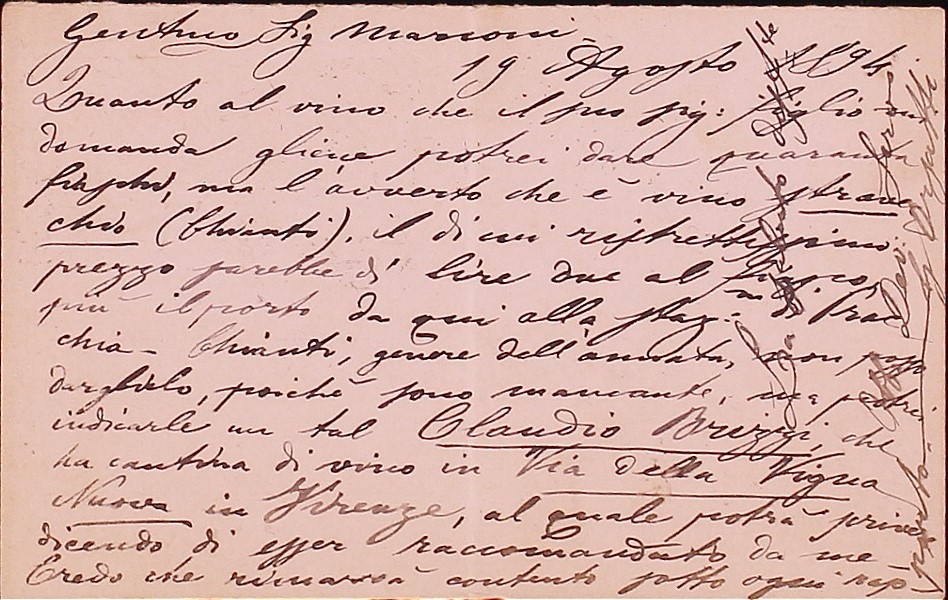 Gentmo Sig Marconi
19 Agosto 1894
Quanto al vino che il suo sig: figlio mi
domanda gliene potrei dare quaranta
fiaschi, ma l'avverto che è vino strave
chio (Chianti), il di cui ristrettissimo
prezzo sarebbe di lire due al fiasco,
più il porto da qui alla staz.ne di Prac
chia - Chianti, genere dell'annata, non posso
darglielo, poichè sono mancante, ma potrei
indicarle un tal Claudio Brizzi, che
ha cantina di vino in Via della Vigna
Nuova in Firenze, al quale potrà
dicendo di esser raccomandato da me
Credo che rimarrà contento sotto ogni rap
porto.